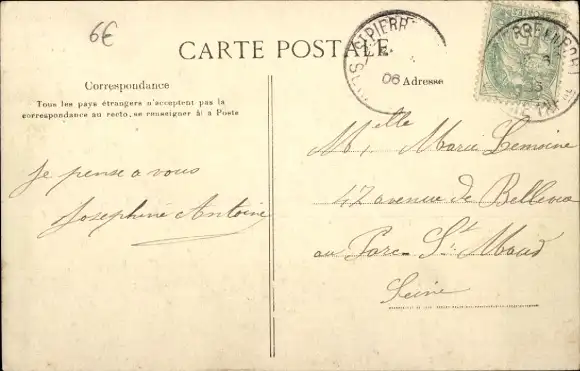 6€
CARTE POSTALE
ST PIERRE
06
Correspondance
Adresse
Tous les pays étrangers n'acceptent pas la
correspondance au recto, se renseigner à la Poste
Je pense a vous
Joséphine Antoine
Melle Marie Lemoine
42 avenue de Bellevue
au Parc-St-Maud
Seine